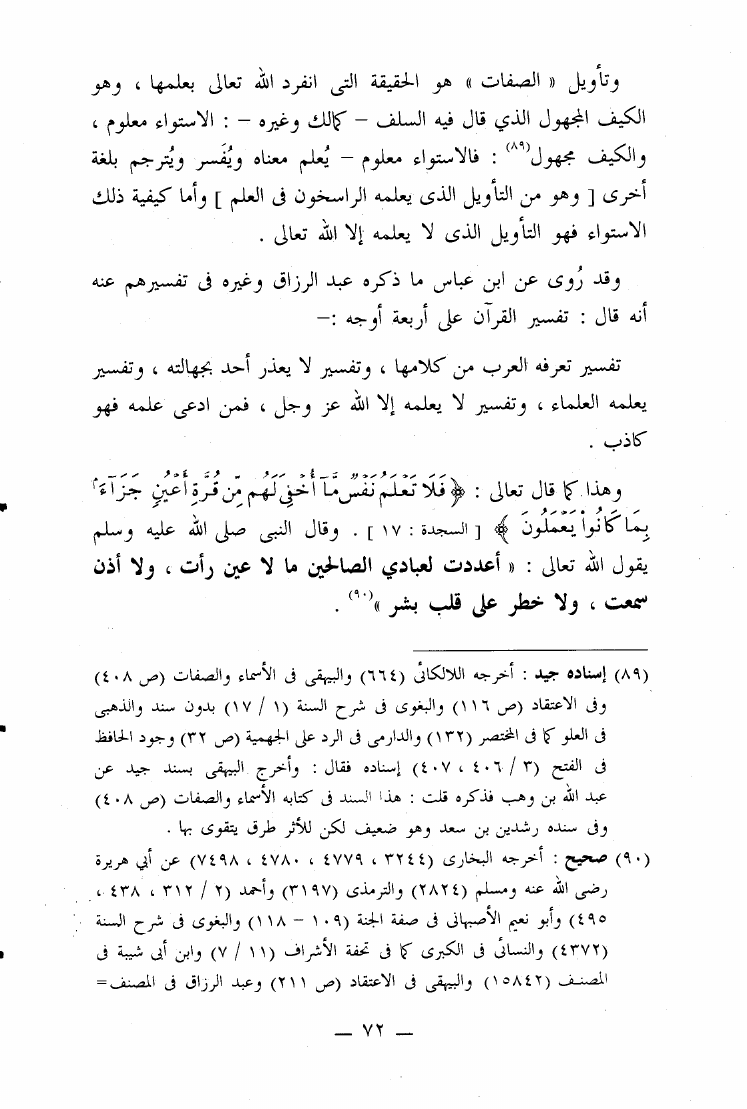 وتأويل « الصفات » هو الحقيقة التى انفرد الله تعالى بعلمها ، وهو
الكيف المجهول الذي قال فيه السلف – كمالك وغيره – : الاستواء معلوم ،
والكيف مجهول(٨٩) : فالاستواء معلوم – يُعلم معناه ويُفَسر ويُترجم بلغة
أخرى [ وهو من التأويل الذى يعلمه الراسخون فى العلم ] وأما كيفية ذلك
الاستواء فهو التأويل الذى لا يعلمه إلا الله تعالى .
وقد رُوى عن ابن عباس ما ذكره عبد الرزاق وغيره فى تفسيرهم عنه
أنه قال : تفسير القرآن على أربعة أوجه :–
تفسير تعرفه العرب من كلامها ، وتفسير لا يعذر أحد بجهالته ، وتفسير
يعلمه العلماء ، وتفسير لا يعلمه إلا الله عز وجل ، فمن ادعى علمه فهو
كاذب .
وهذا كما قال تعالى : ﴿ فَلَا تَعْلَمُ نَفْسٌ مَّآ أُخْفِىَ لَهُم مِّن قُرَّةِ أَعْيُنٍ جَزَآءًۢ
بِمَا كَانُوا۟ يَعْمَلُونَ ﴾ [ السجدة : ١٧ ] . وقال النبى صلى الله عليه وسلم
يقول الله تعالى : « أعددت لعبادي الصالحين ما لا عين رأت ، ولا أذن
سمعت ، ولا خطر على قلب بشر »(٩٠) .
(٨٩) إسناده جيد : أخرجه اللالكائى (٦٦٤) والبيهقى فى الأسماء والصفات (ص ٤٠٨)
وفى الاعتقاد (ص ١١٦) والبغوى فى شرح السنة (١ / ١٧) بدون سند والذهبى
فى العلو كما فى المختصر (١٣٢) والدارمى فى الرد على الجهمية (ص ٣٢) وجود الحافظ
فى الفتح (٣ / ٤٠٦ ، ٤٠٧) إسناده فقال : وأخرج البيهقى بسند جيد عن
عبد الله بن وهب فذكره قلت : هذا السند فى كتابه الأسماء والصفات (ص ٤٠٨)
وفى سنده رشدين بن سعد وهو ضعيف لكن للأثر طرق يتقوى بها .
(٩٠) صحيح : أخرجه البخارى (٣٢٤٤ ، ٤٧٧٩ ، ٤٧٨٠ ، ٧٤٩٨) عن أبي هريرة
رضى الله عنه ومسلم (٢٨٢٤) والترمذى (٣١٩٧) وأحمد (٢ / ٣١٢ ، ٤٣٨ ،
٤٩٥) وأبو نعيم الأصبهانى فى صفة الجنة (١٠٩ – ١١٨) والبغوى فى شرح السنة
(٤٣٧٢) والنسائى فى الكبرى كما فى تحفة الأشراف (١١ / ٧) وابن أبى شيبة فى
المصنف (١٥٨٤٢) والبيهقى فى الاعتقاد (ص ٢١١) وعبد الرزاق فى المصنف=
— ٧٢ —